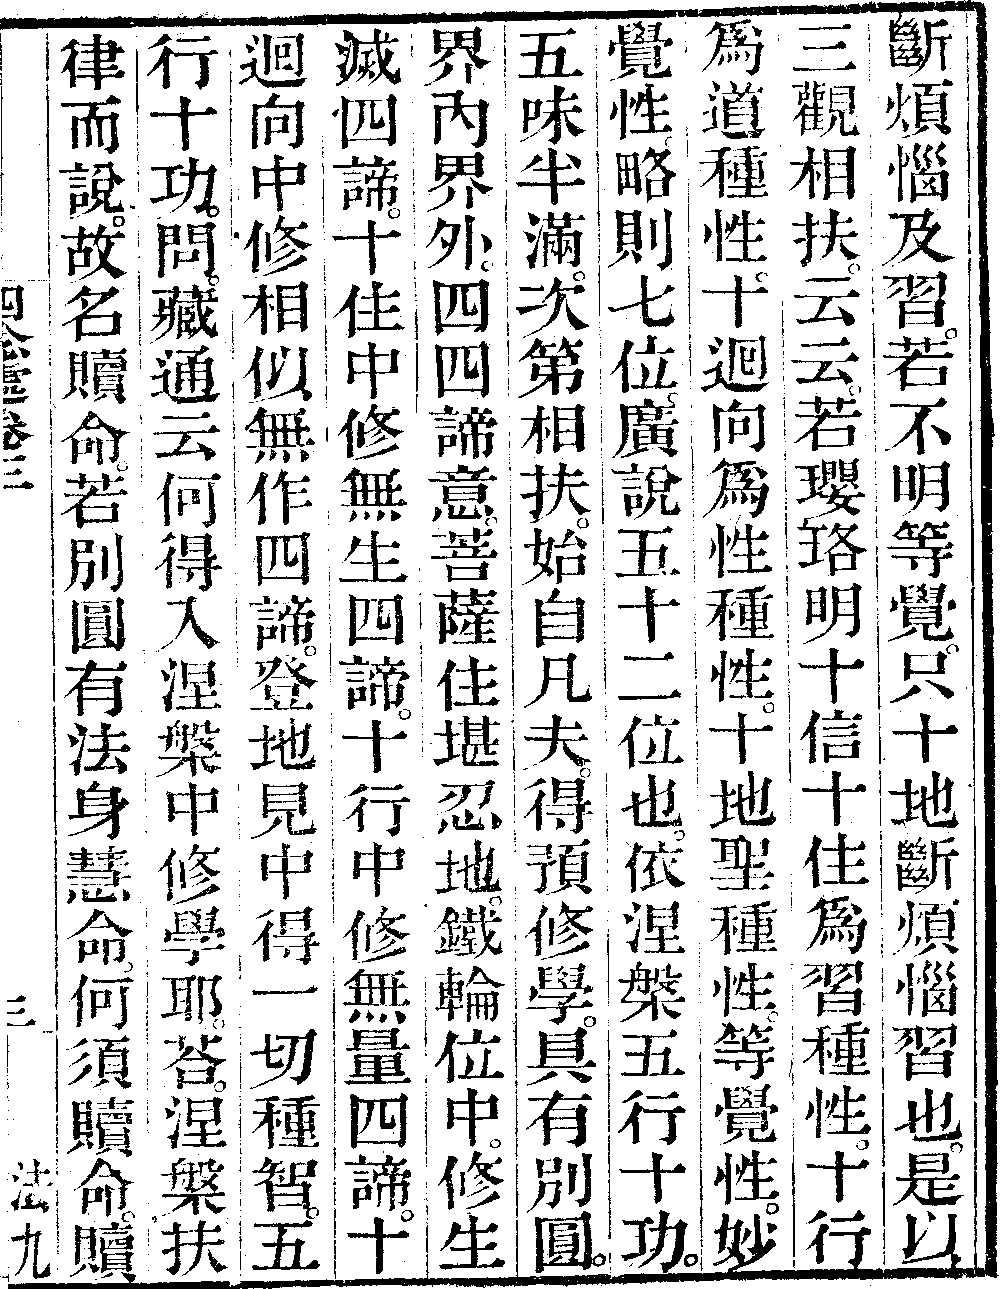 斷煩惱及習。若不明等覺。只十地斷煩惱習也。是以
三觀相扶。云云。若瓔珞明十信十住爲習種性。十行
爲道種性。十迴向爲性種性。十地聖種性。等覺性。妙
覺性。略則七位。廣說五十二位也。依涅槃五行十功。
五味半滿。次第相扶。始自凡夫。得預修學。具有別圓。
界內界外。四四諦意。菩薩住堪忍地。鐵輪位中。修生
滅四諦。十住中修無生四諦。十行中修無量四諦。十
迴向中修相似無作四諦。登地見中得一切種智。五
行十功。問。藏通云何得入涅槃中修學耶。荅。涅槃扶
律而說。故名贖命。若別圓有法身慧命。何須贖命。贖
卷三
三
法九